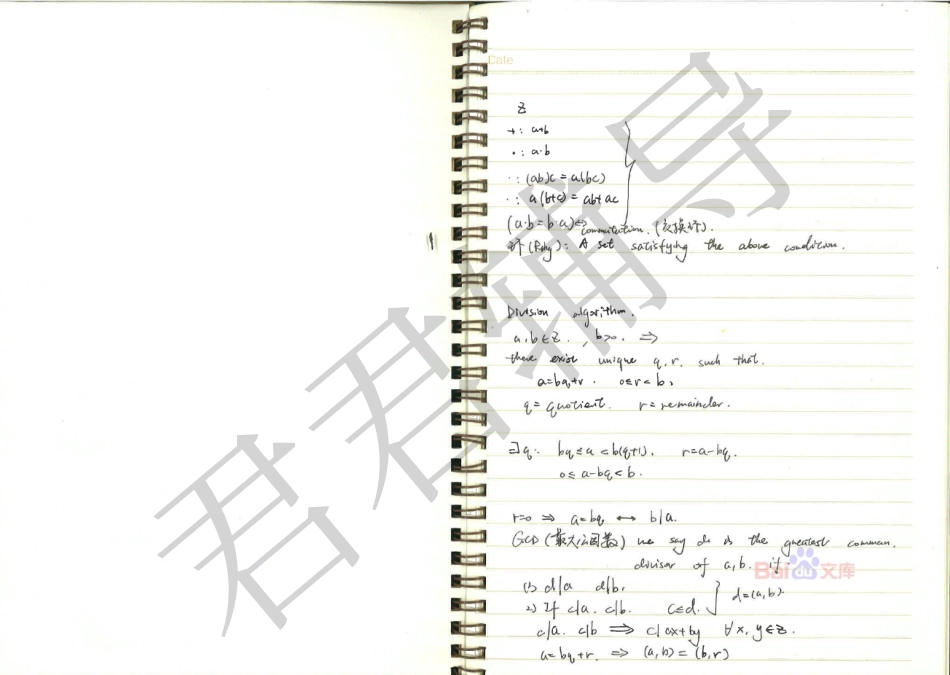 Date
Z
+: a+b
·: a·b
·: (ab)c = a(bc)
·: a(b+c) = ab+ac
(a·b = b·a) ⇔ commutation. (交换环).
环 (Ring): A set satisfying the above condition.
Division algorithm.
a, b ∈ Z. , b>0. ⇒
there exist unique q, r, such that.
a=bq+r. 0≤r<b,
q= quotient. r= remainder.
∃q: bq ≤ a < b(q+1). r=a-bq.
0≤ a-bq < b.
r=0 ⇒ a=bq ↔ b|a.
GCD (最大公因数) we say d is the greatest common.
divisor of a,b. if
(1) d|a d|b,
2) If c|a. c|b. c≤d. } d=(a,b)
c|a. c|b ⇒ c|ax+by ∀x, y∈Z.
a=bq+r. ⇒ (a,b) = (b,r)
君君辅导
Bai du 文库